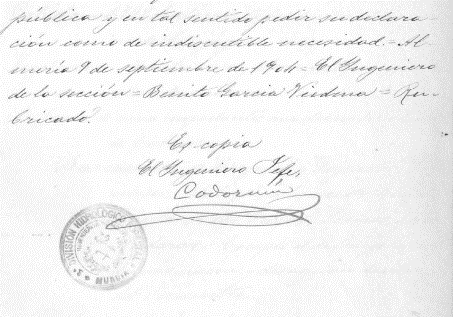 pública y en tal sentido pedir su declara-
ción como de indiscutible necesidad = Al
mería 9 de septiembre de 1904 = El Ingeniero
de la sección = Benito García Viedma = Ru-
bricado.
Es copia
El Ingeniero Jefe,
Codorniu
3ª DIVISIÓN HIDROLÓGICO FORESTAL
MURCIA